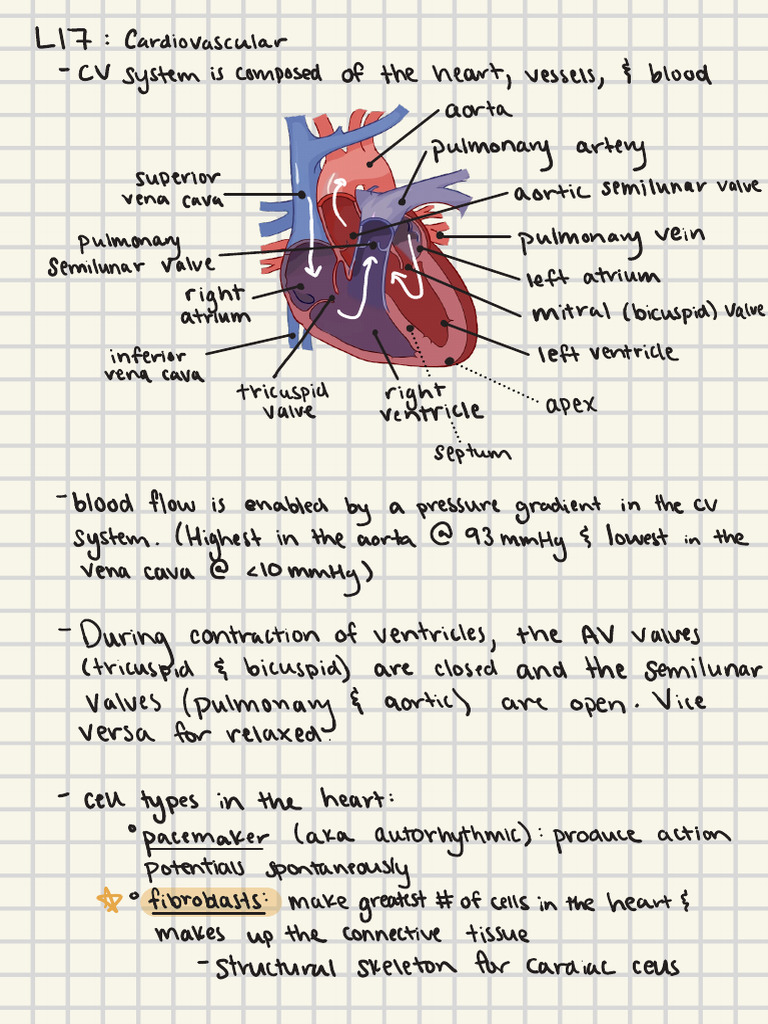 L17: Cardiovascular
- CV system is composed of the heart, vessels, & blood
aorta
pulmonary artery
superior
vena cava
aortic semilunar valve
pulmonary
semilunar valve
pulmonary vein
left atrium
right
atrium
mitral (bicuspid) valve
inferior
vena cava
left ventricle
tricuspid
valve
right
ventricle
apex
septum
- blood flow is enabled by a pressure gradient in the CV
system. (Highest in the aorta @ 93 mmHg & lowest in the
vena cava @ <10 mmHg)
- During contraction of ventricles, the AV valves
(tricuspid & bicuspid) are closed and the semilunar
valves (pulmonary & aortic) are open. Vice
versa for relaxed.
- cell types in the heart:
• pacemaker (aka autorhythmic): produce action
potentials spontaneously
☆ • fibroblasts: make greatest # of cells in the heart &
makes up the connective tissue
- structural skeleton for cardiac cells